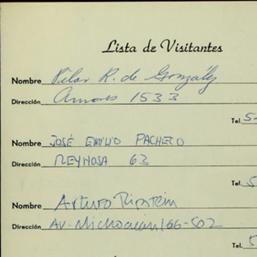 Lista de Visitantes
Nombre Pilar R. de González
Dirección Amores 1533
Tel. 5
Nombre JOSÉ EMILIO PACHECO
Dirección REYNOSA 63
Tel. 5
Nombre Arturo Ripstein
Dirección Av. Michoacán 166-502
Tel. 5